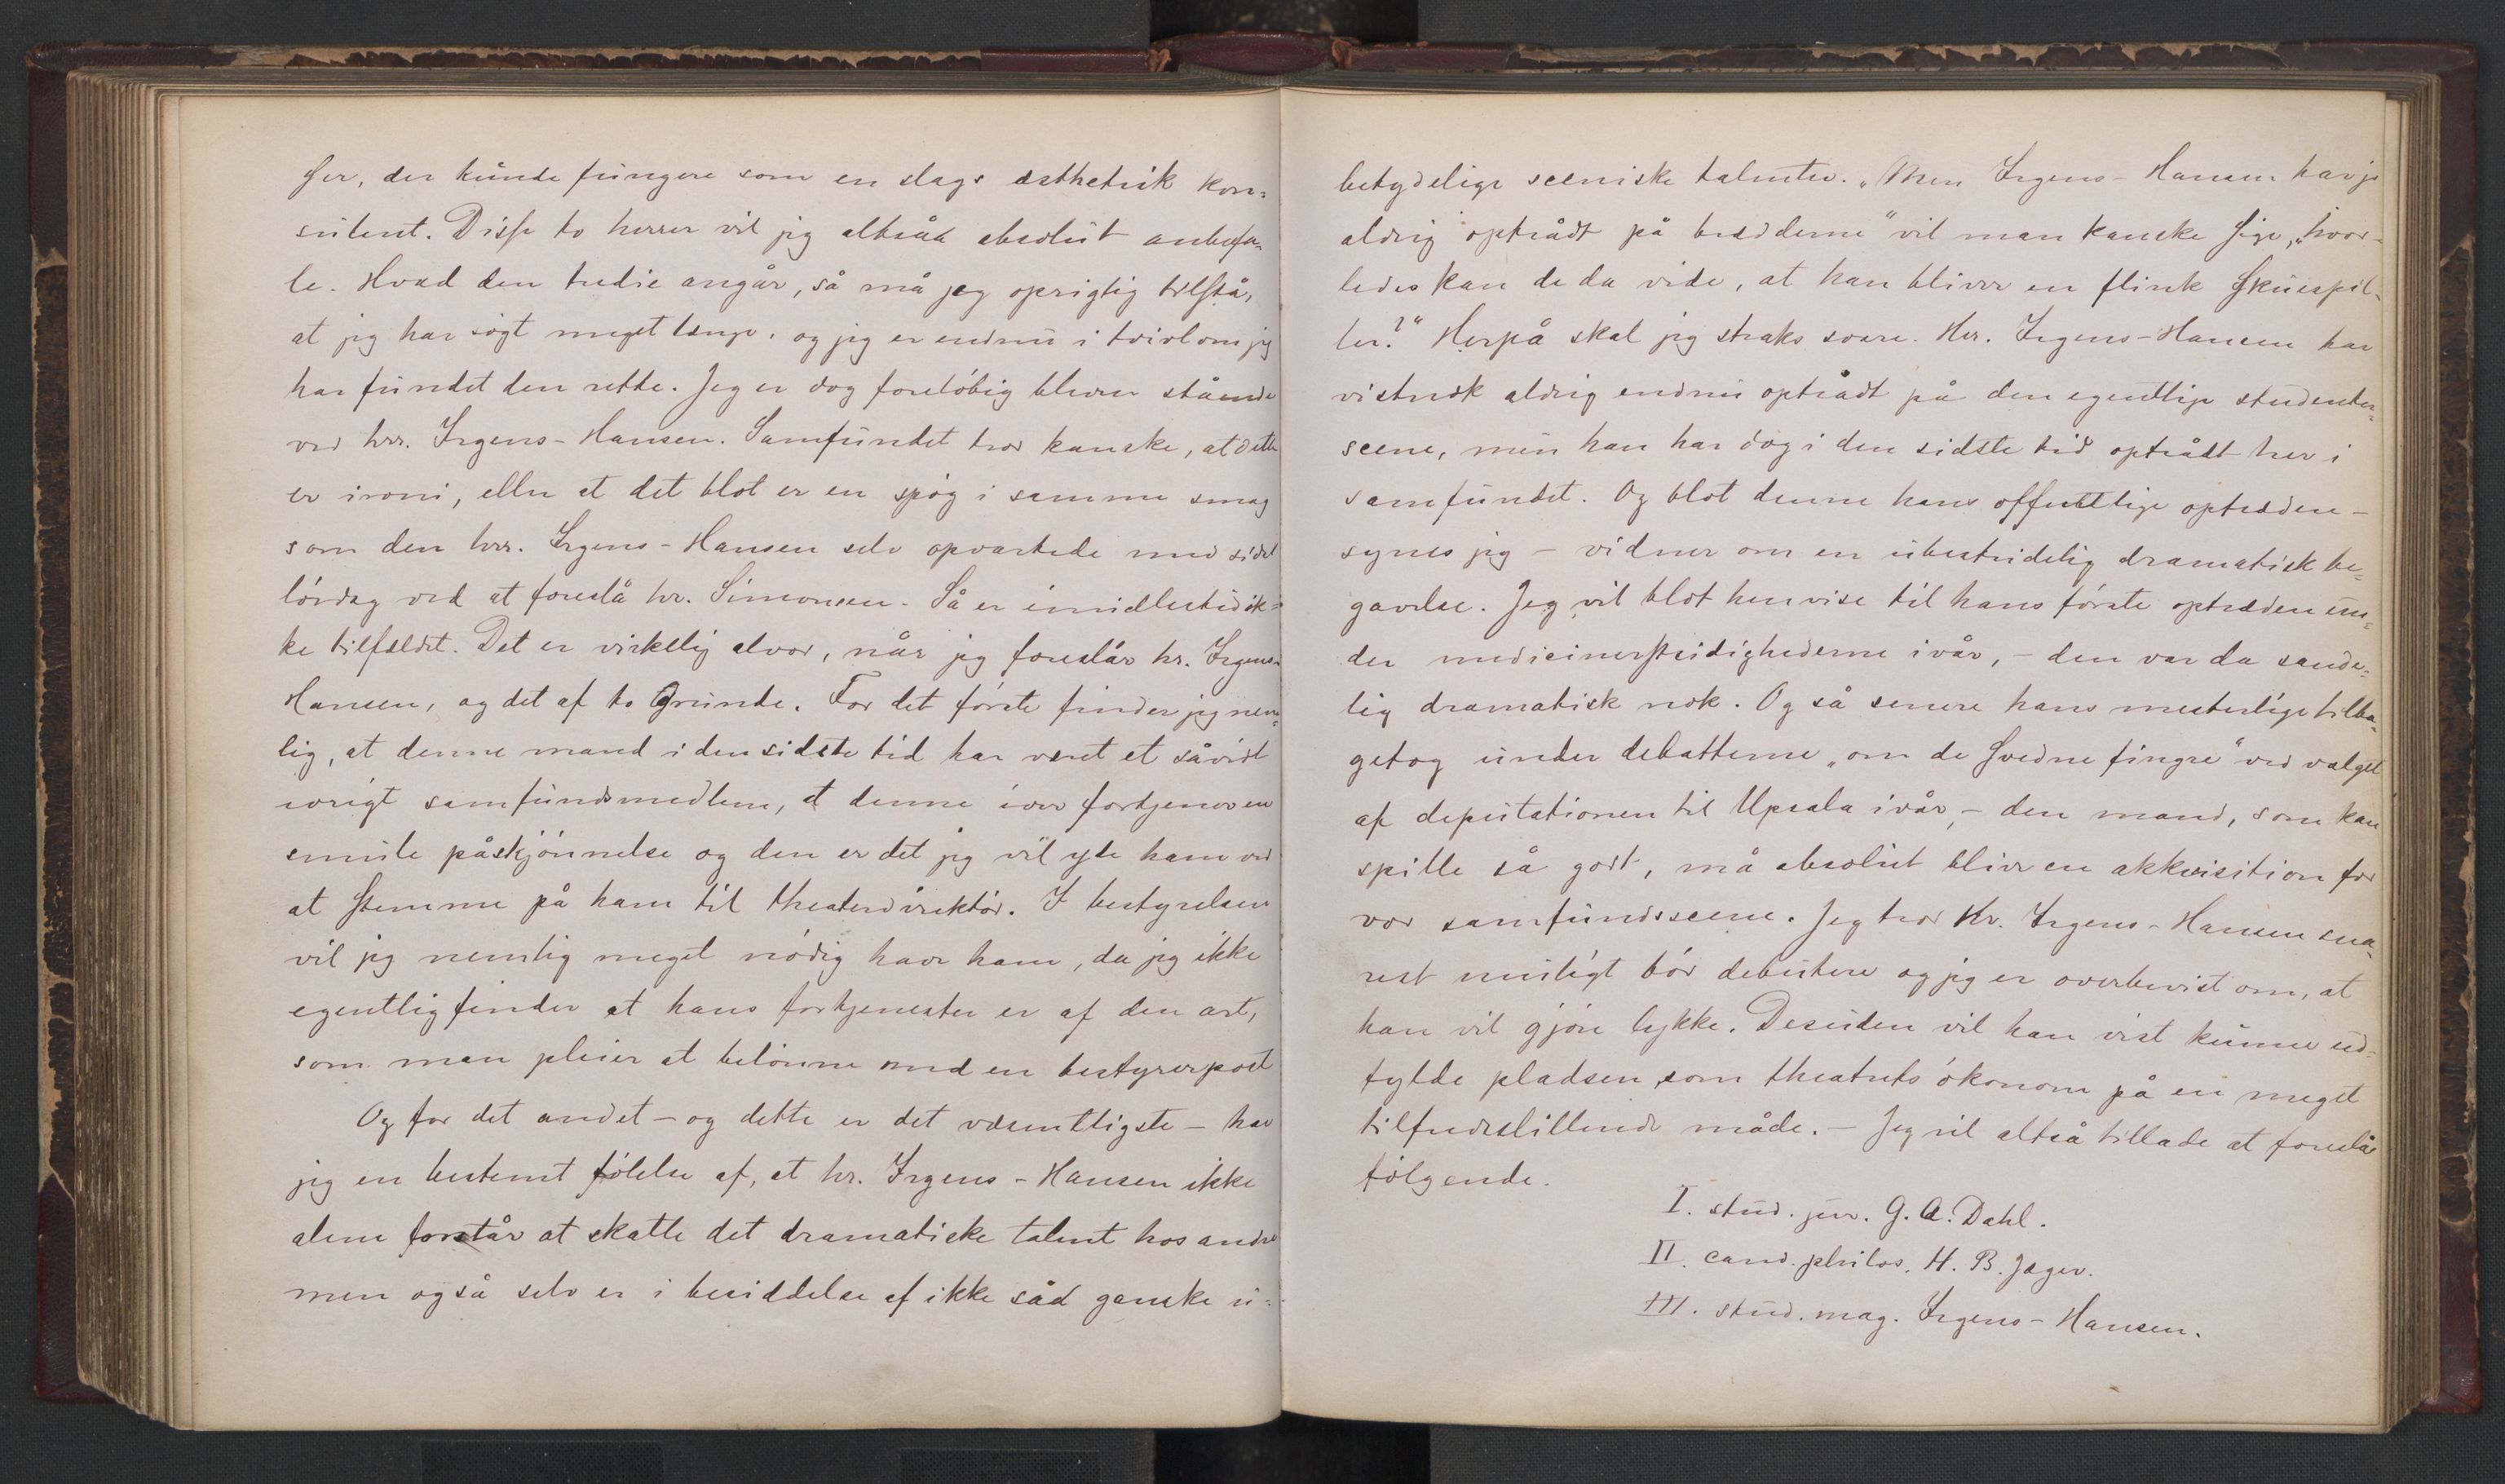 ser, der kunde fungere som en slags æsthetisk kon-
sulent. Disse to herrer vil jeg altsåa absolut anbefa-
le. Hvad den tredie angår, så må jeg oprigtig tilstå,
at jeg har søgt meget længe, og jeg er endnu i tvivl om jeg
har fundet den rette. Jeg er dog foreløbig bleven stående
ved hrr. Irgens-Hansen. Samfundet tror kanske, at dette
er ironi, eller at det blot er en spøg i samme smag
som den hrr. Irgens-Hansen selv opvartede med sidst
lørdag ved at foreslå hr. Simonsen. Så er imidlertid ik-
ke tilfældet. Det er virkelig alvor, når jeg foreslår hr. Irgens-
Hansen, og det af to Grunde. For det første finder jeg nem-
lig, at denne mand i den sidste tid har været et såvidt
ivrigt samfundsmedlem, at denne iver fortjener en
smule påskjønnelse og den er det jeg vil yde ham ved
at stemme på ham til theaterdirektør. I bestyrelsen
vil jeg nemlig meget nødig have ham, da jeg ikke
egentlig finder at hans fortjenester er af den art,
som man pleier at belønne med en bestyrerpost
Og for det andet – og dette er det væsentligste – har
jeg en bestemt følelse af, at hr. Irgens-Hansen ikke
alene forstår at skatte det dramatiske talent hos andre
men også selv er i besiddelse af ikke såd ganske u-
betydelige sceniske talenter. „Men Irgens-Hansen har jo
aldrig optrådt på brædderne" vil man kanske sige, „hvor-
ledes kan de da vide, at han bliver en flink Skuespil-
ler?" Herpå skal jeg straks svare. Hr. Irgens-Hansen har
vistnok aldrig endnu optrådt på den egentlige studenter-
scene, men han har dog i den sidste tid optrådt her i
samfundet. Og blot denne hans offentlige optræden –
synes jeg – vidner om en ubestridelig dramatisk be-
gavelse. Jeg vil blot henvise til hans første optræden un-
der medicinerstridighederne ivår, – den var da sande-
lig dramatisk nok. Og så senere hans mesterlige tilba-
getog under debatterne „om de svedne fingre" ved valget
af deputationen til Upsala ivår, – den mand, som kan
spille så godt, må absolut blive en akkvisition for
vor samfundsscene. Jeg tror Hr. Irgens-Hansen sna-
rest muligt bør debutere og jeg er overbevist om, at
han vil gjøre lykke. Desuden vil han vist kunne ud-
fylde pladsen som theatrets økonom på en meget
tilfredsstillende måde. – Jeg vil altså tillade at foreslå
følgende.
I. stud. jur. G. A. Dahl.
II. cand. philos. H. B. Jæger.
III. stud. mag. Irgens-Hansen.